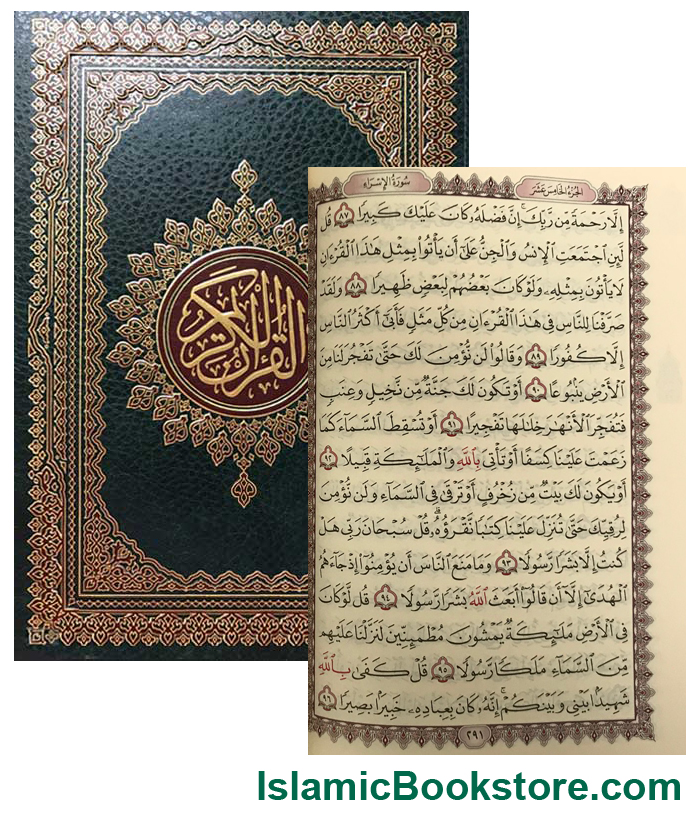 القرآن الكريم
سُورَةُ الإِسْرَاء
الجُزْءُ الخَامِسَ عَشَرَ
إِلَّا رَحْمَةً مِّن رَّبِّكَ ۚ إِنَّ فَضْلَهُۥ كَانَ عَلَيْكَ كَبِيرًا ٨٧ قُل
لَّئِنِ ٱجْتَمَعَتِ ٱلْإِنسُ وَٱلْجِنُّ عَلَىٰٓ أَن يَأْتُوا۟ بِمِثْلِ هَٰذَا ٱلْقُرْءَانِ
لَا يَأْتُونَ بِمِثْلِهِۦ وَلَوْ كَانَ بَعْضُهُمْ لِبَعْضٍ ظَهِيرًا ٨٨ وَلَقَدْ
صَرَّفْنَا لِلنَّاسِ فِى هَٰذَا ٱلْقُرْءَانِ مِن كُلِّ مَثَلٍ فَأَبَىٰٓ أَكْثَرُ ٱلنَّاسِ
إِلَّا كُفُورًا ٨٩ وَقَالُوا۟ لَن نُّؤْمِنَ لَكَ حَتَّىٰ تَفْجُرَ لَنَا مِنَ
ٱلْأَرْضِ يَنۢبُوعًا ٩٠ أَوْ تَكُونَ لَكَ جَنَّةٌ مِّن نَّخِيلٍ وَعِنَبٍ
فَتُفَجِّرَ ٱلْأَنْهَٰرَ خِلَٰلَهَا تَفْجِيرًا ٩١ أَوْ تُسْقِطَ ٱلسَّمَآءَ كَمَا
زَعَمْتَ عَلَيْنَا كِسَفًا أَوْ تَأْتِىَ بِٱللَّهِ وَٱلْمَلَٰٓئِكَةِ قَبِيلًا ٩٢
أَوْ يَكُونَ لَكَ بَيْتٌ مِّن زُخْرُفٍ أَوْ تَرْقَىٰ فِى ٱلسَّمَآءِ وَلَن نُّؤْمِنَ
لِرُقِيِّكَ حَتَّىٰ تُنَزِّلَ عَلَيْنَا كِتَٰبًا نَّقْرَؤُهُۥ ۗ قُلْ سُبْحَانَ رَبِّى هَلْ
كُنتُ إِلَّا بَشَرًا رَّسُولًا ٩٣ وَمَا مَنَعَ ٱلنَّاسَ أَن يُؤْمِنُوٓا۟ إِذْ جَآءَهُمُ
ٱلْهُدَىٰٓ إِلَّآ أَن قَالُوٓا۟ أَبَعَثَ ٱللَّهُ بَشَرًا رَّسُولًا ٩٤ قُل لَّوْ كَانَ
فِى ٱلْأَرْضِ مَلَٰٓئِكَةٌ يَمْشُونَ مُطْمَئِنِّينَ لَنَزَّلْنَا عَلَيْهِم
مِّنَ ٱلسَّمَآءِ مَلَكًا رَّسُولًا ٩٥ قُلْ كَفَىٰ بِٱللَّهِ
شَهِيدًۢا بَيْنِى وَبَيْنَكُمْ ۚ إِنَّهُۥ كَانَ بِعِبَادِهِۦ خَبِيرًۢا بَصِيرًا ٩٦
٢٩١
IslamicBookstore.com